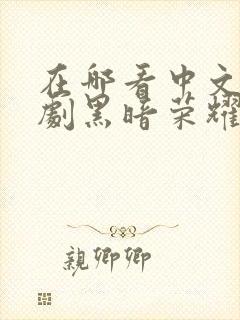 在哪看中文
劇黑暗荣耀
親卿卿